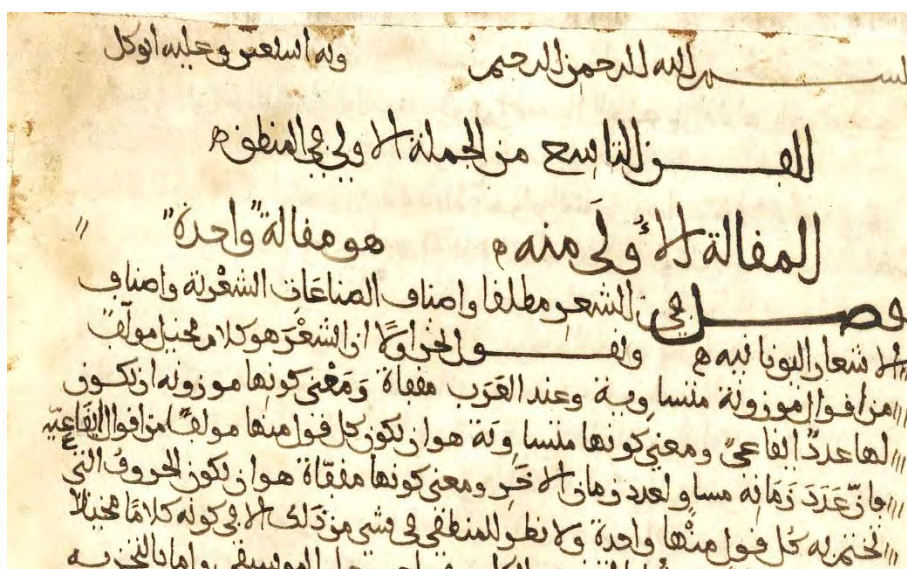 بسم الله الرحمن الرحيم وبه استعين وعليه اتوكل
الفن التاسع من الجملة الاولى في المنطق
المقالة الأولَى منه هو مقالة واحدة
فصل في الشعر مطلقا واصناف الصناعَات الشعْرية واصناف
الاشعار اليونانية ونقول نحن اولًا ان الشعْرَ هو كلام مخيل مولف
من اقوال موزونة متساوية وعند العَرَب مقفاة وَمَعْنى كونها موزونه ان تكون
لها عددٌ ايقاعيٌ ومعنى كونها متساوية هو ان يكون كل قول منها مولفًا من اقوال ايقاعيّه
فانّ عَدَدَ زَمَانه مساو لعدد زمان الاخَرِ ومعنى كونها مقفّاة هو ان يكون الحروفُ التي
يختم به كل قول منْها واحدة ولا نظر للمنطقي في شي من ذلك الا في كونه كلامًا مخيلًا